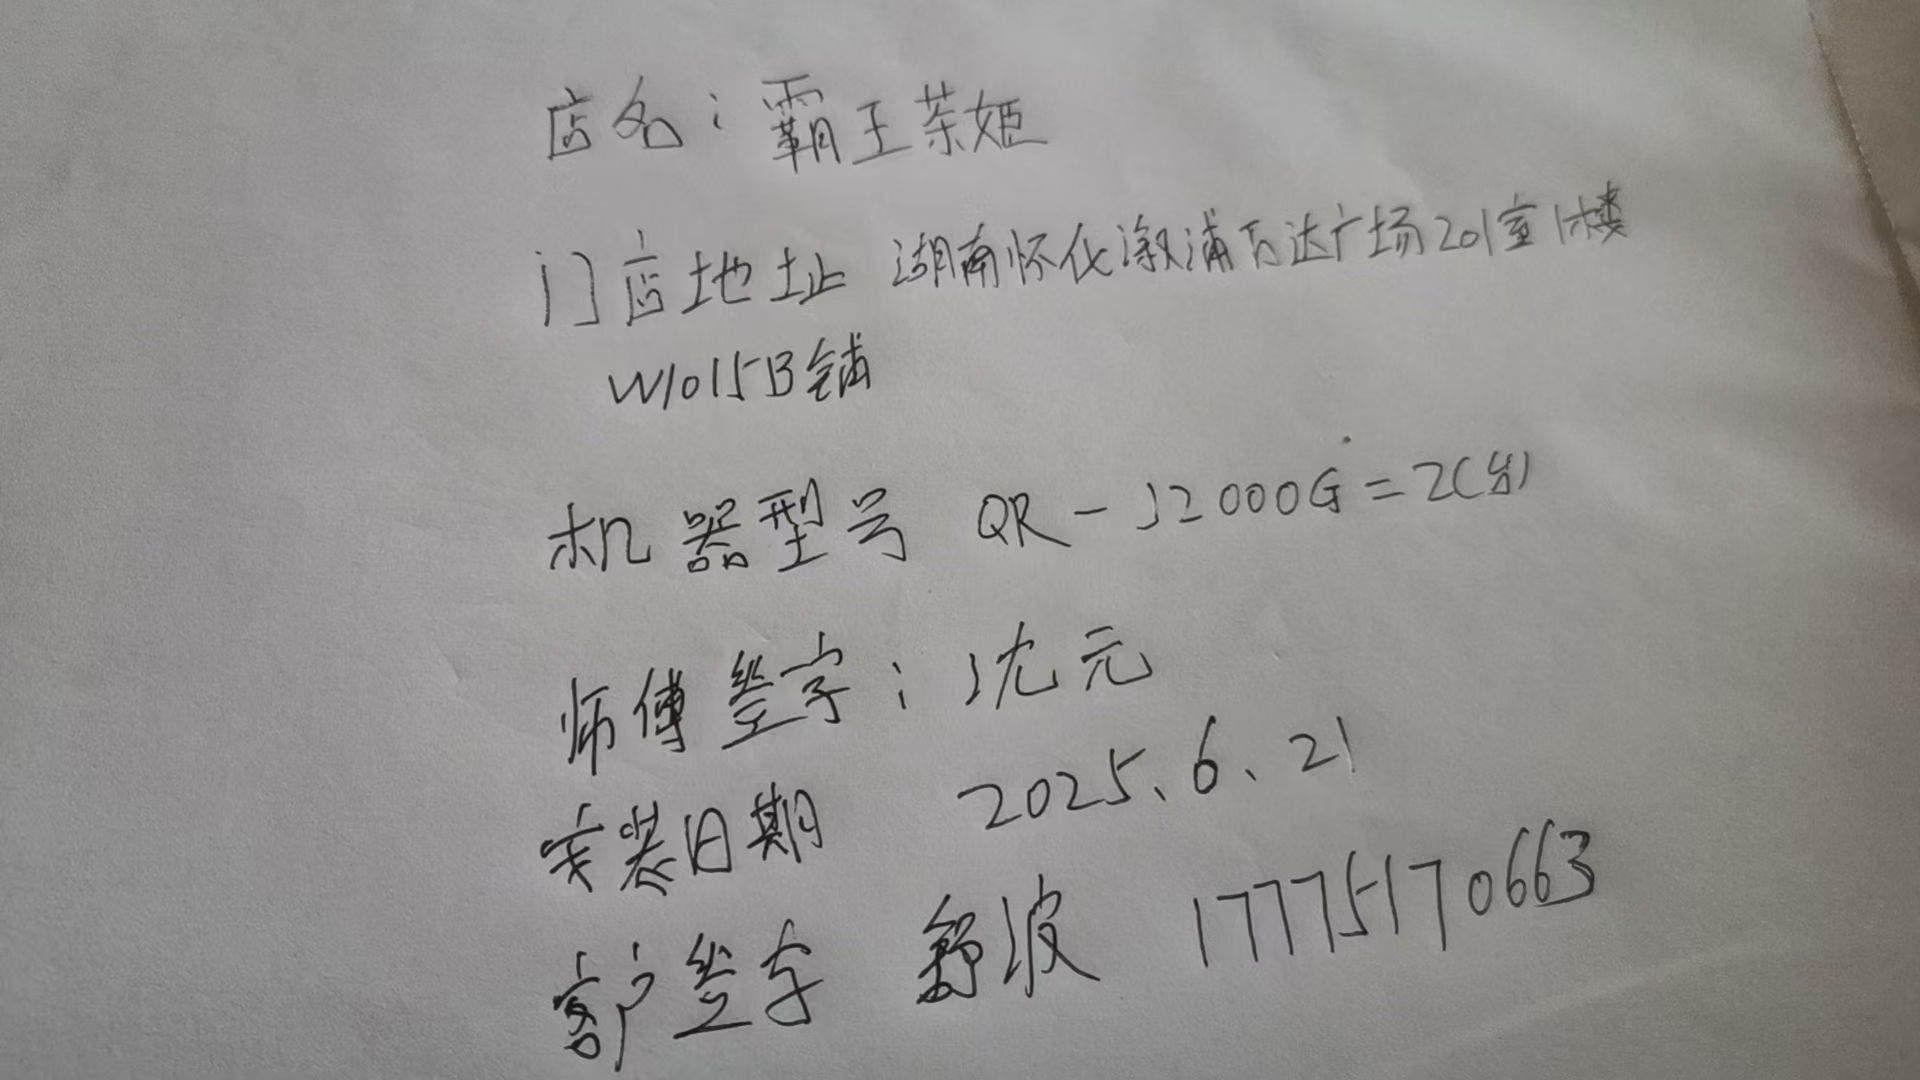 店名：霸王茶姬
门店地址 湖南怀化溆浦万达广场201室1楼
W1015B铺
机器型号 QR-J2000G=2(台)
师傅签字：沈元
安装日期 2025.6.21
客户签字 舒波 17775170663